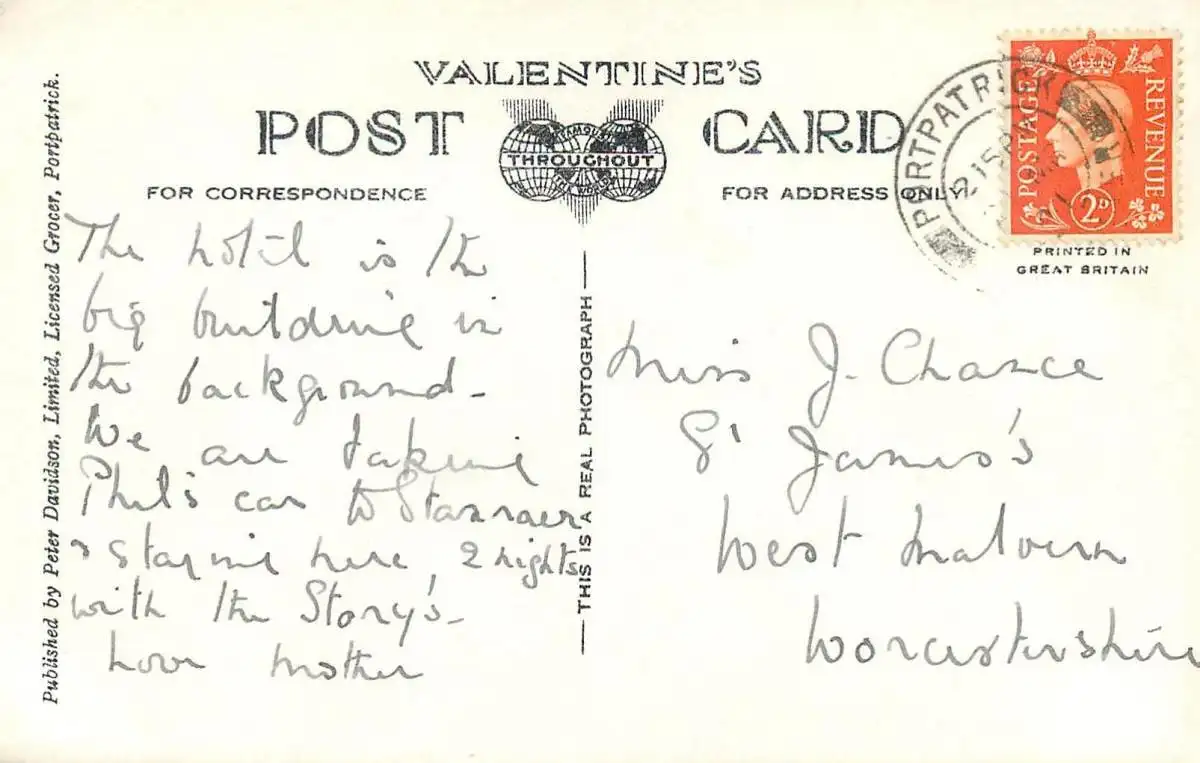 VALENTINE'S
POST CARD
FAMOUS
THROUGHOUT
THE WORLD
FOR CORRESPONDENCE
FOR ADDRESS ONLY
PORTPATRICK
2 15 P
POSTAGE
REVENUE
2D
PRINTED IN
GREAT BRITAIN
Published by Peter Davidson, Limited, Licensed Grocer, Portpatrick.
The hotel is the
big building in
the background -
We are taking
Phil's car to Stanraer
& staying here, 2 nights
with the Story's -
Love Mother
THIS IS A REAL PHOTOGRAPH
Miss J. Chance
St James's
West Malvern
Worcestershire